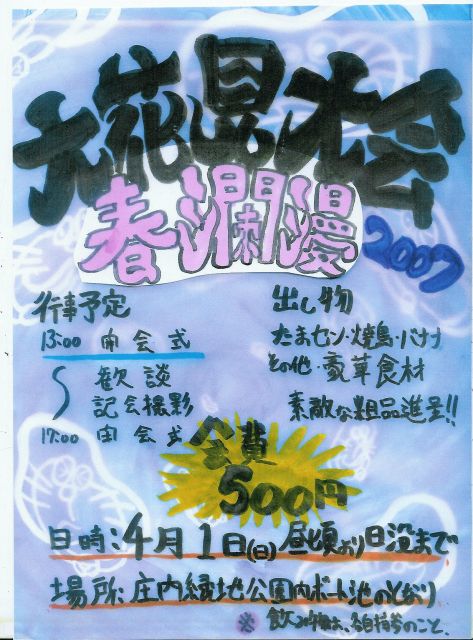 大花見大会
春瀾漫
2007
行事予定
13:00 開会式
歓談
記念撮影
17:00 閉会式
出し物
たませソ・焼鳥・バナナ
その他・豪華食材
素敵な粗品進呈!!
会費
500円
日時:4月1日(日)昼頃より日没まで
場所:庄内緑地公園内ボート池のとなり
※飲み物は、各自持参のこと